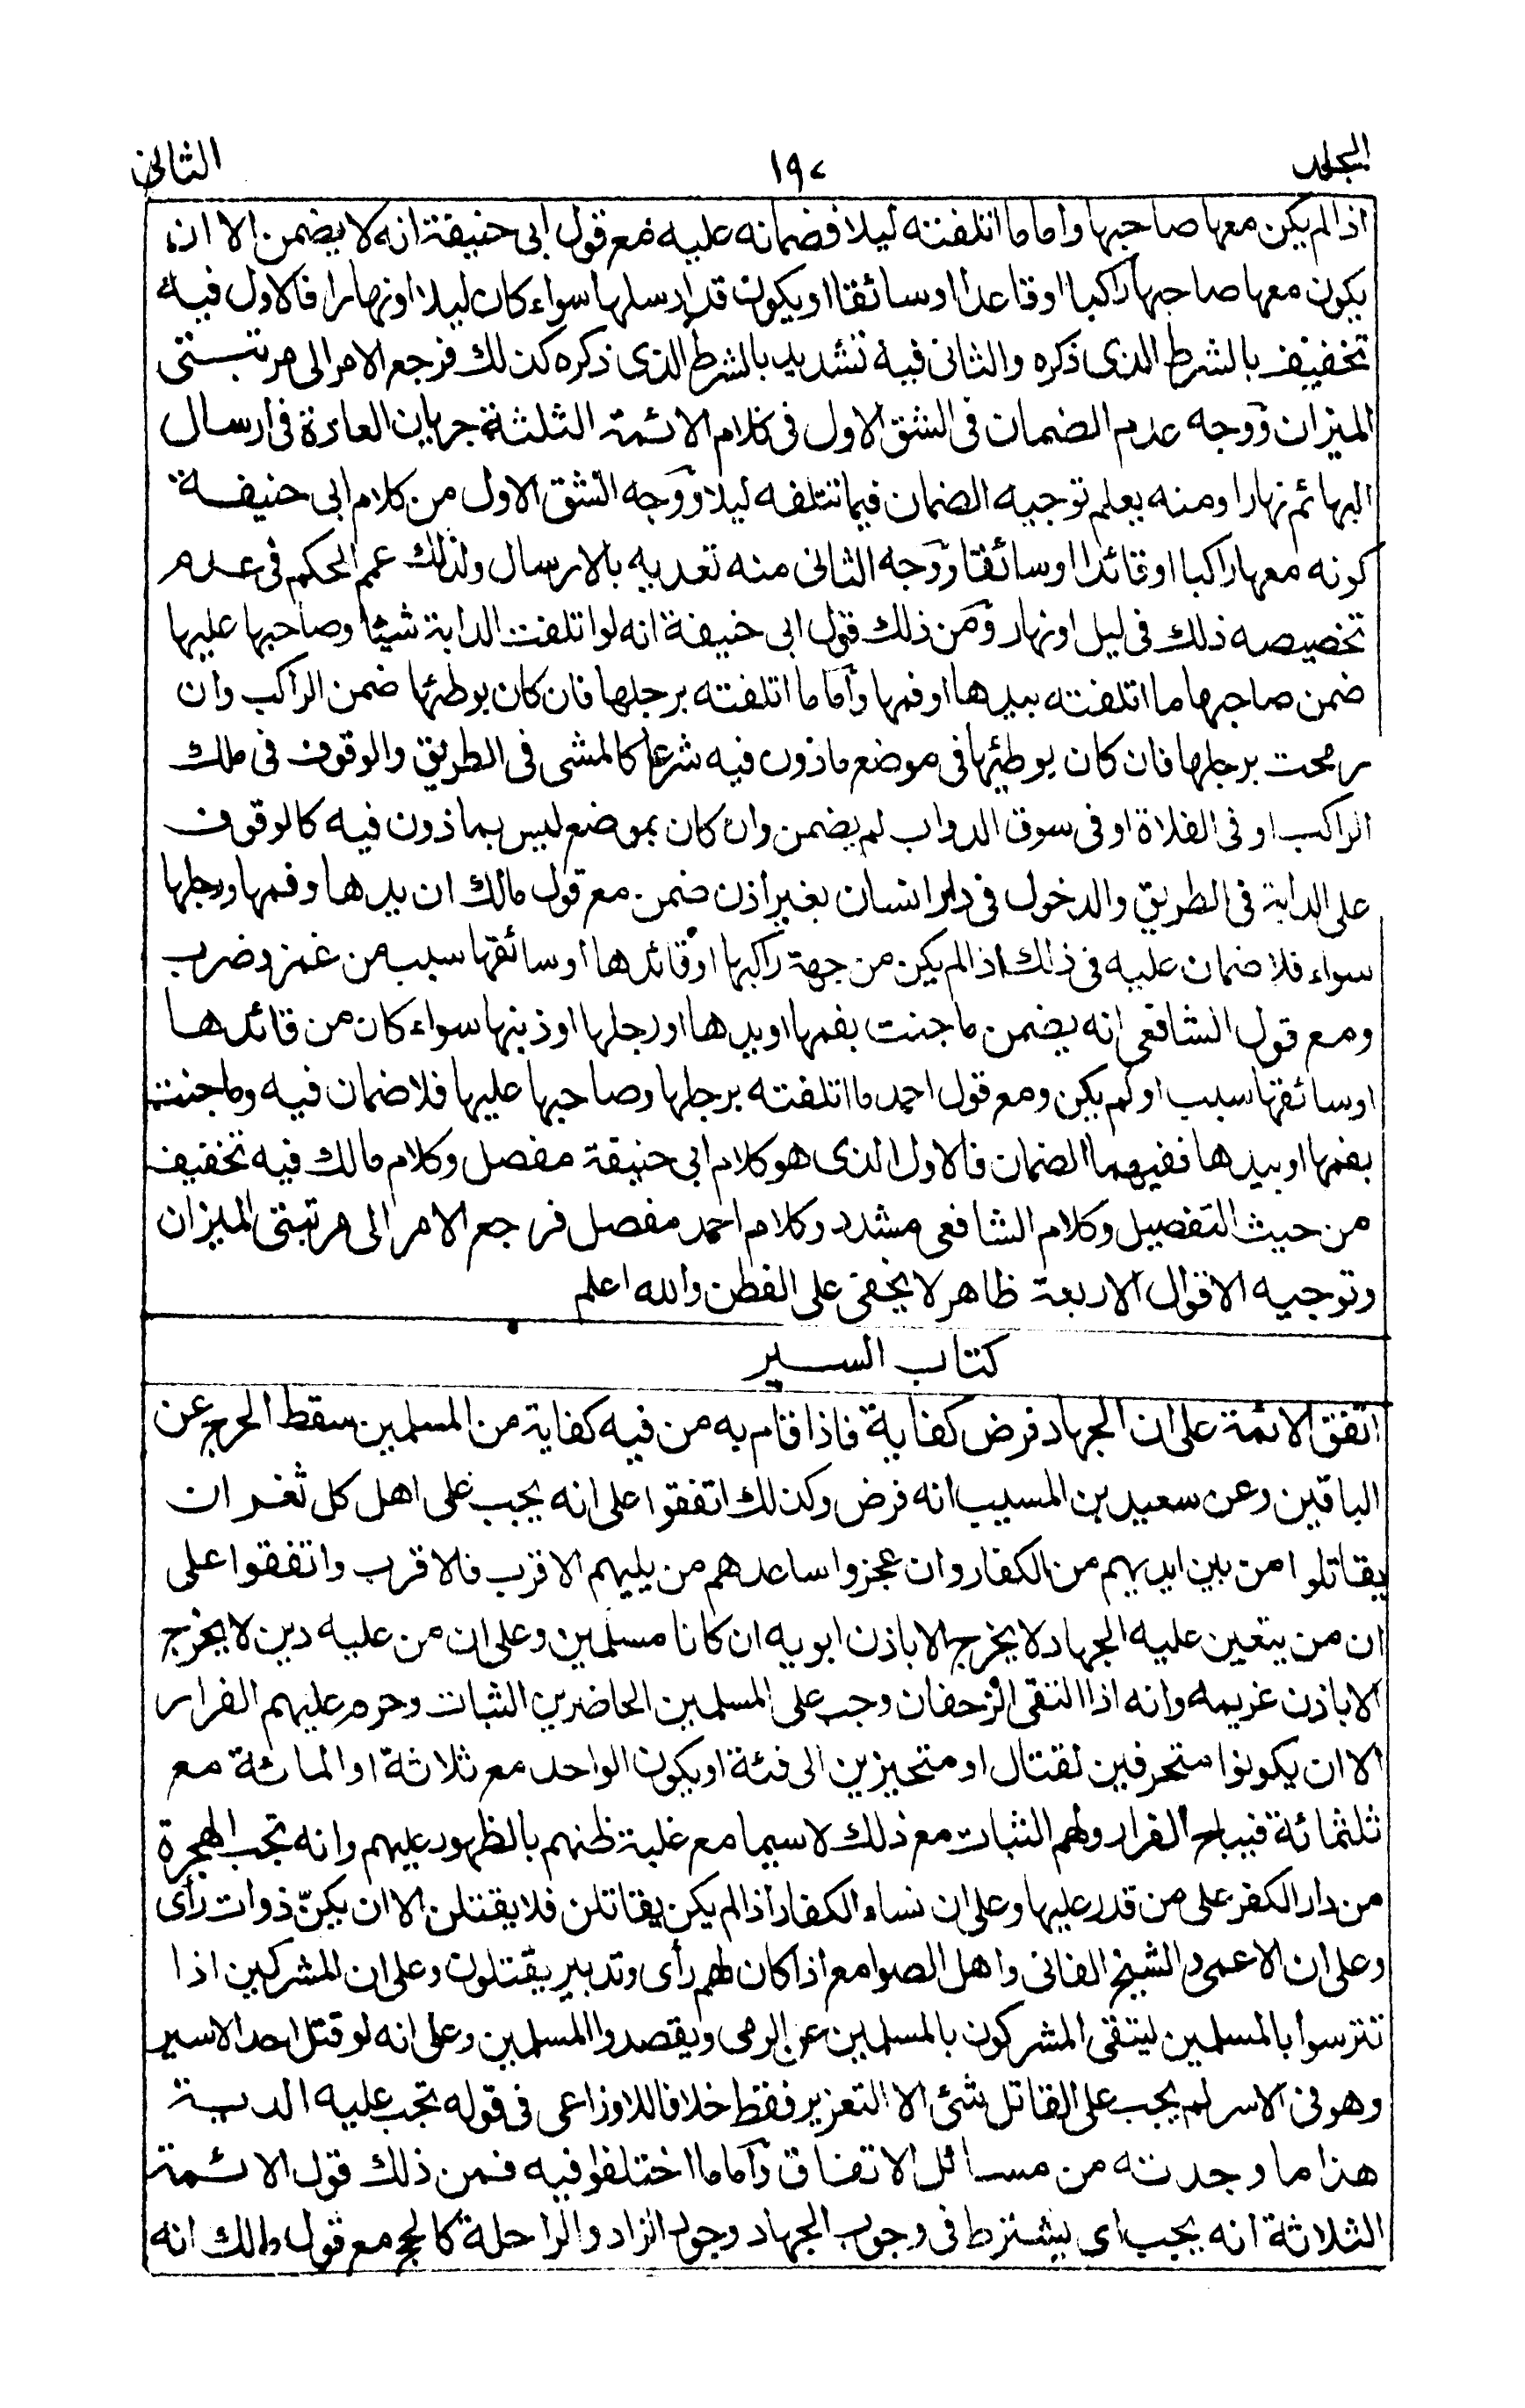 المجلد ١٩٢ الثانى
اذا لم يكن معها صاحبها وأما ما اتلفته ليلا فضمانه عليه مع قول ابى حنيفة انه لا يضمن الا ان
يكون معها صاحبها راكبا اوقاعدا اوسائقا او يكون قد ارسلها سواء كان ليلا او نهارا فالاول فيه
تخفيف بالشرط الذى ذكره والثانى فيه تشديد بالشرط الذى ذكره كذلك فرجع الامر الى مرتبتى
الميزان ووجه عدم الضمان فى الشق الاول فى كلام الائمة الثلثة جريان العادة فى ارسال
البهائم نهارا ومنه يعلم توجيه الضمان فيما تتلفه ليلا ووجه الشق الاول من كلام ابى حنيفة
كونه معها راكبا او قائدا اوسائقا ووجه الثانى منه تعديه بالارسال ولذلك عمم الحكم فى عدم
تخصيصه ذلك فى ليل او نهار ومن ذلك قول ابى حنيفة انه لو اتلفت الدابة شيئا وصاحبها عليها
ضمن صاحبها ما اتلفته بيدها او فمها وأما ما اتلفته برجلها فان كان بوطئها ضمن الراكب وان
رمحت برجلها فان كان يوطئها فى موضع ماذون فيه شرعا كالمشى فى الطريق والوقوف فى ملك
الراكب او فى الفلاة او فى سوق الدواب لم يضمن وان كان بموضع ليس بماذون فيه كالوقوف
على الدابة فى الطريق والدخول فى دار انسان بغير اذن ضمن مع قول مالك ان يدها وفمها ورجلها
سواء فلا ضمان عليه فى ذلك اذا لم يكن من جهة راكبها او قائدها او سائقها سبب من غمز وضرب
ومع قول الشافعى انه يضمن ما جنت بفمها او يدها او رجلها او ذنبها سواء كان من قائدها
اوسائقها سبب او لم يكن ومع قول احمد ما اتلفته برجلها وصاحبها عليها فلا ضمان فيه وما جنت
بفمها او بيدها ففيهما الضمان فالاول الذى هو كلام ابى حنيفة مفصل وكلام مالك فيه تخفيف
من حيث التفصيل وكلام الشافعى مشدد وكلام احمد مفصل فرجع الامر الى مرتبتى الميزان
وتوجيه الاقوال الاربعة ظاهر لا يخفى على الفطن والله اعلم
كتاب السير
اتفق الائمة على ان الجهاد فرض كفاية فاذا قام به من فيه كفاية من المسلمين سقط الحرج عن
الباقين وعن سعيد بن المسيب انه فرض وكذلك اتفقوا على انه يجب على اهل كل ثغر ان
يقاتلوا من بين ايديهم من الكفار وان عجزوا ساعدهم من يليهم الاقرب فالاقرب واتفقوا على
ان من يتعين عليه الجهاد لا يخرج الا باذن ابويه ان كانا مسلمين وعلى ان من عليه دين لا يخرج
الا باذن غريمه وانه اذا التقى الزحفان وجب على المسلمين الحاضرين الثبات وحرم عليهم الفرار
الا ان يكونوا متحرفين لقتال او متحيزين الى فئة او يكون الواحد مع ثلاثة او المائة مع
ثلثمائة فيباح الفرار ولهم الثبات مع ذلك لاسيما مع غلبة ظنهم بالظهور عليهم وانه تجب الهجرة
من دار الكفر على من قدر عليها وعلى ان نساء الكفار اذا لم يكن يقاتلن فلا يقتلن الا ان يكنّ ذوات رأى
وعلى ان الاعمى والشيخ الفانى واهل الصوامع اذا كان لهم رأى وتدبير يقتلون وعلى ان المشركين اذا
تترسوا بالمسلمين ليتقى المشركون بالمسلمين عن الرمى ويقصدوا المسلمين وعلى انه لو قتل احد الاسير
وهو فى الاسر لم يجب على القاتل شئ الا التعزير فقط خلافا للاوزاعى فى قوله تجب عليه الدية
هذا ما وجدته من مسائل الاتفاق وأما ما اختلفوا فيه فمن ذلك قول الائمة
الثلاثة انه يجب اى يشترط فى وجوب الجهاد وجود الزاد والراحلة كالحج مع قول مالك انه